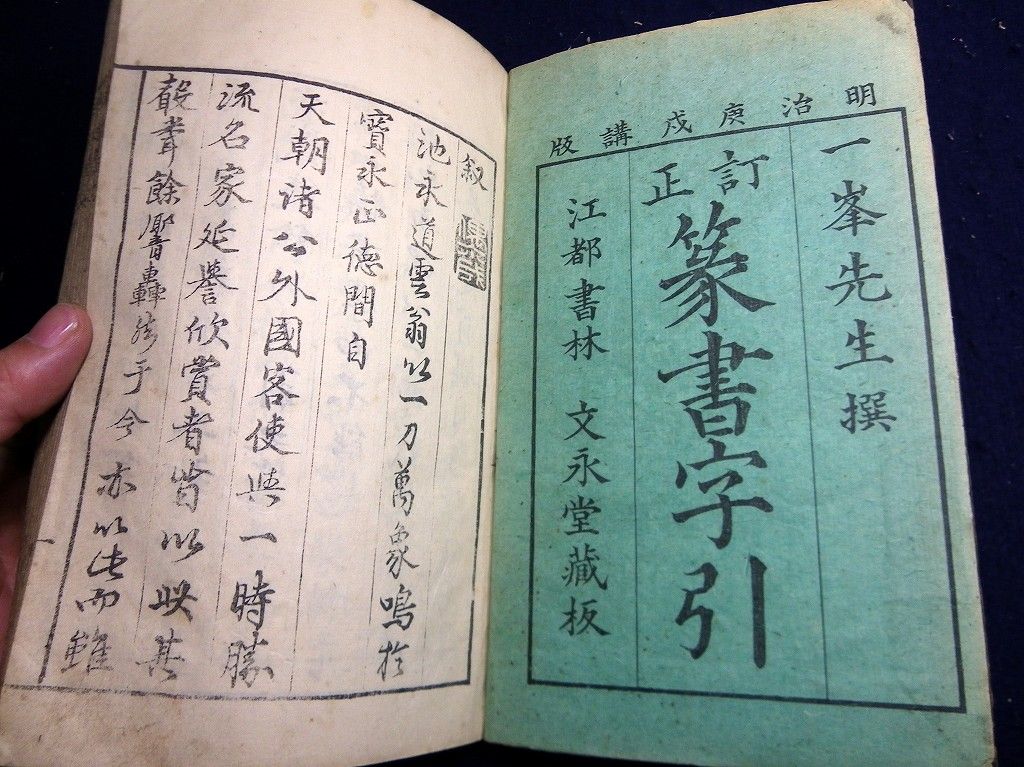 明治庚戌講版
一峯先生撰
訂正
篆書字引
江都書林 文永堂藏板
叙
池永道雲翁以一刀萬象鳴於
寳永正徳間自
天朝諸公外國客使與一時勝
流名家延譽欣賞者皆以此其
餘響轟
于今亦以此而雖